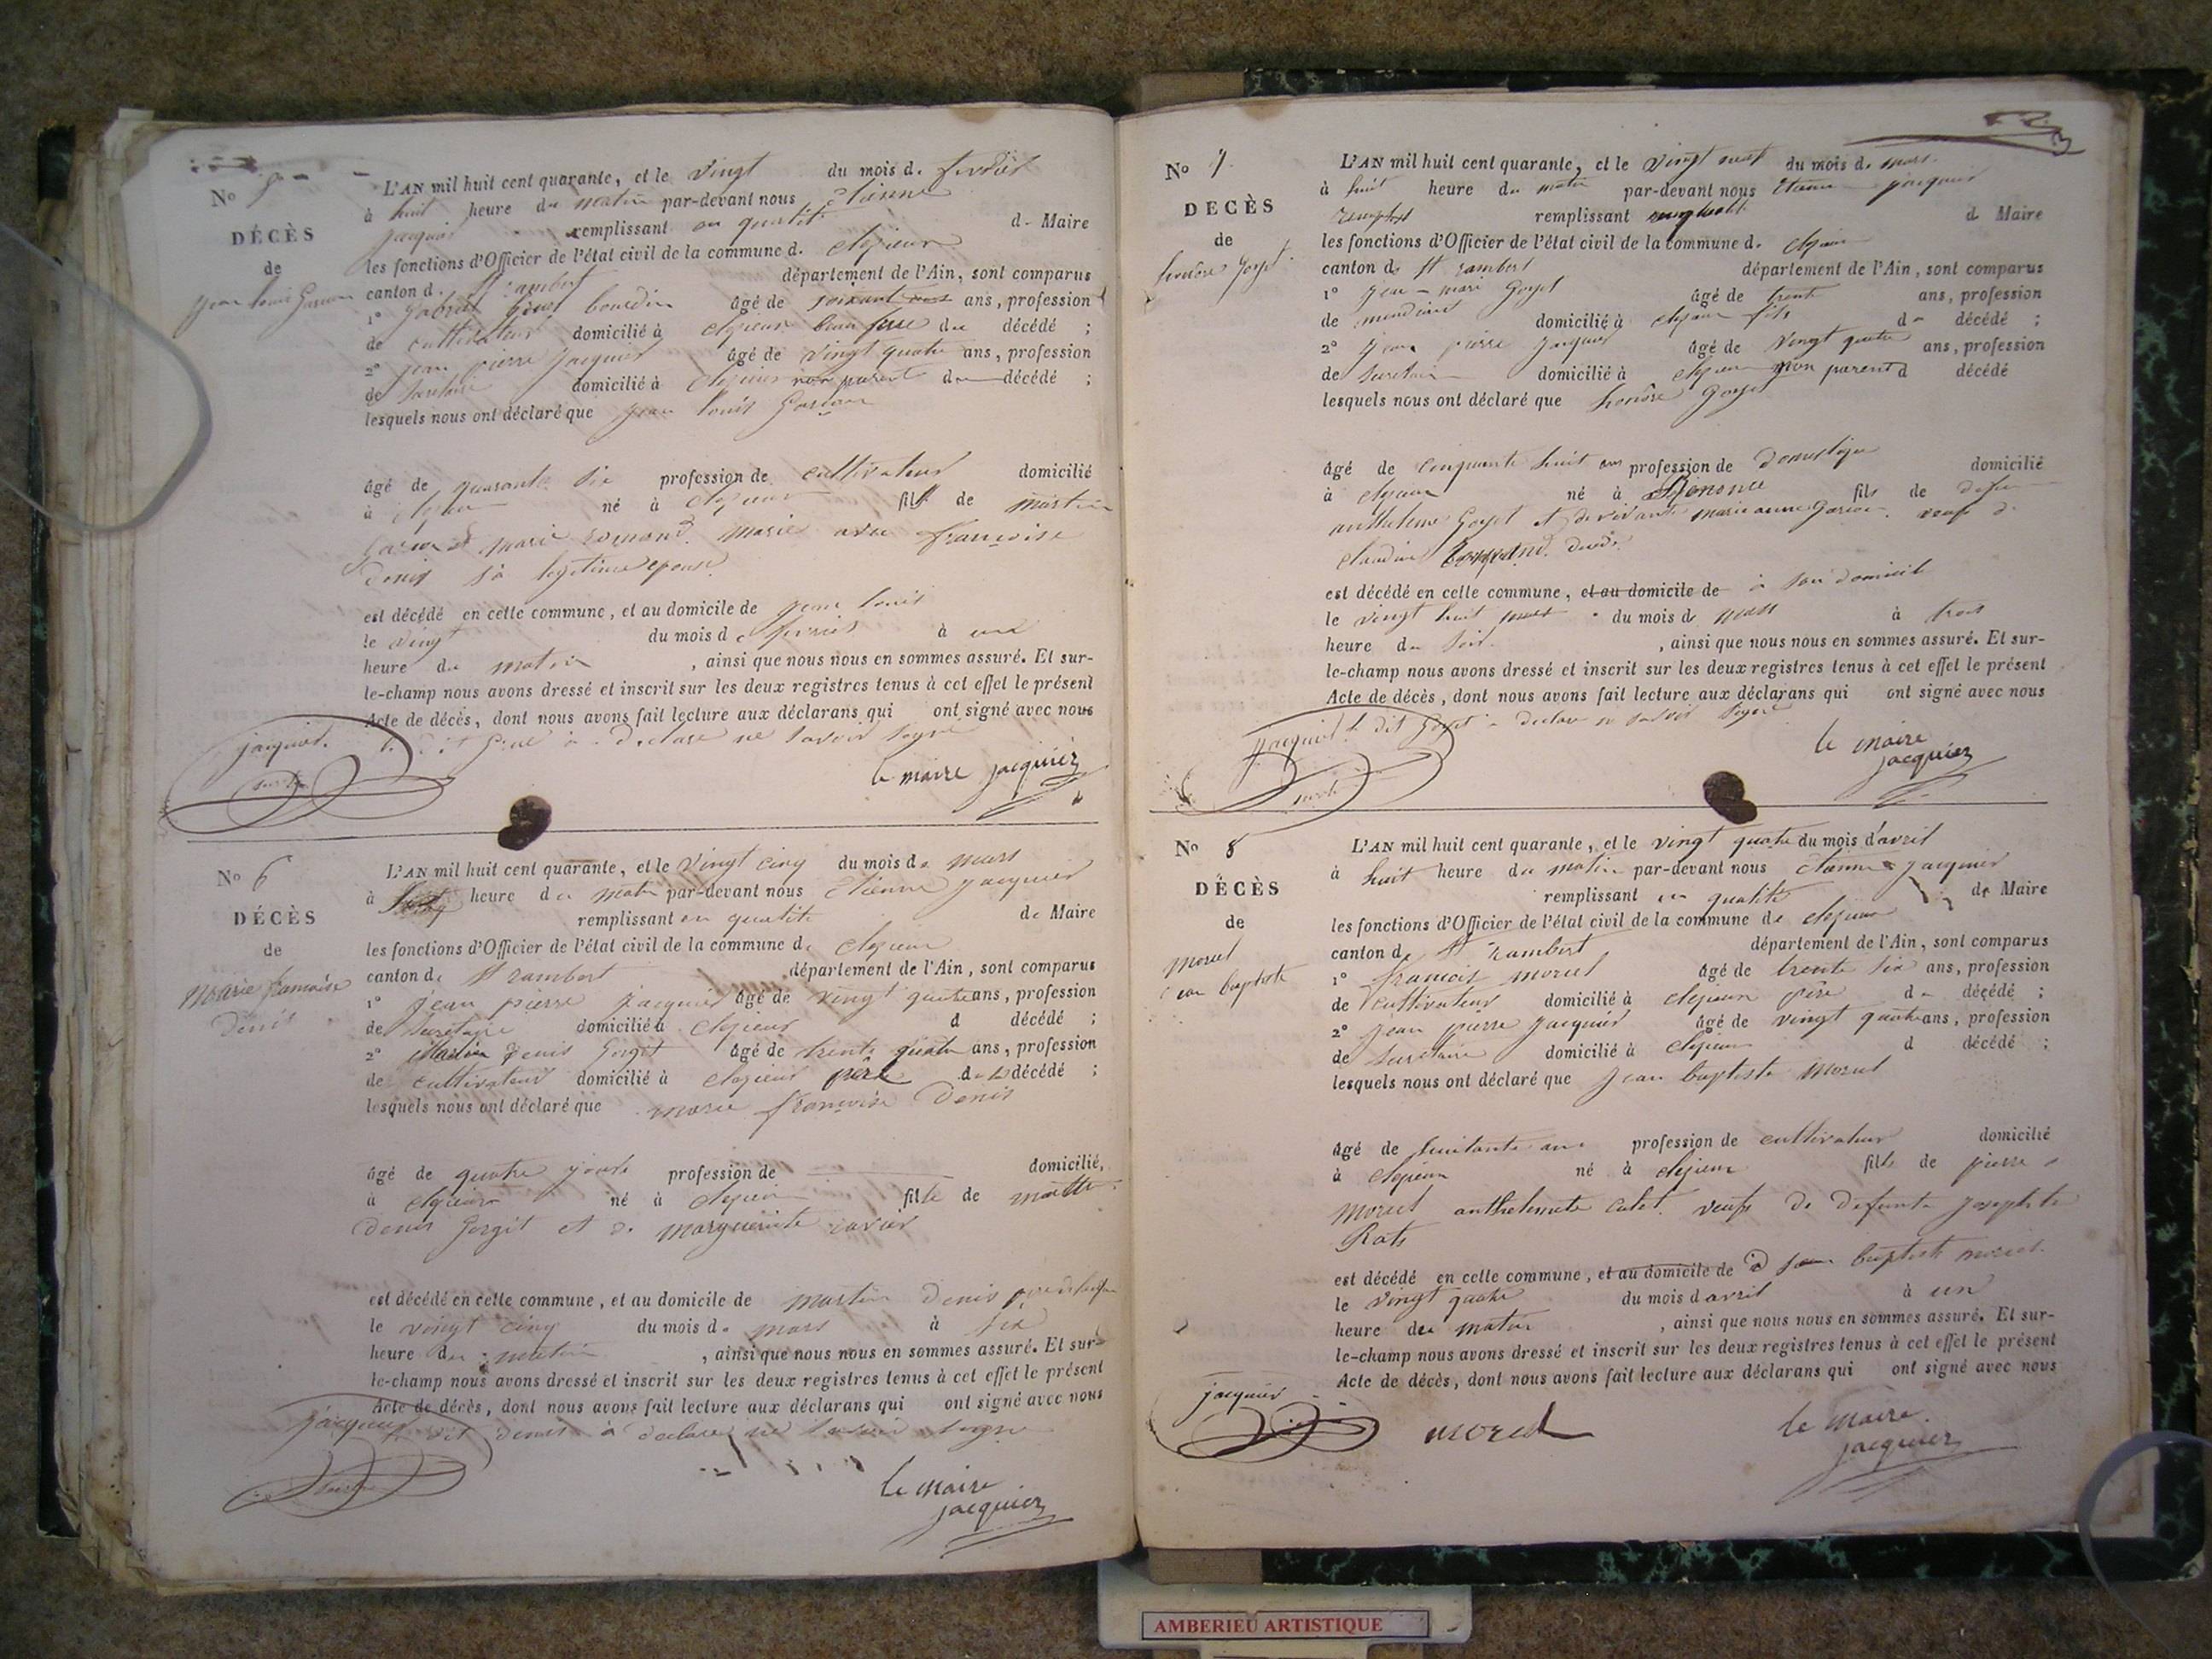 No 5
DÉCÈS
de
jean louis Garion
L'AN mil huit cent quarante, et le vingt du mois d. fevrier
à huit heure du matin par-devant nous étienne
jacquier remplissant en qualité d. Maire
les fonctions d'Officier de l'état civil de la commune d. cleyzieux
canton d. St rambert département de l'Ain, sont comparus
1° gabriel bourdin âgé de soixante ans, profession
de cultivateur domicilié à beau frere du décédé ;
2° jean pierre jacquier âgé de vingt quatre ans, profession
de domicilié à non parent du décédé ;
lesquels nous ont déclaré que jean louis Garion
âgé de quarante six profession de cultivateur domicilié
à né à fils de martin
garion et marie marié avec françoise
Denis sa legitime epouse
est décédé en cette commune, et au domicile de jean louis
le vingt du mois de fevrier à une
heure du matin , ainsi que nous nous en sommes assuré. Et sur-
le-champ nous avons dressé et inscrit sur les deux registres tenus à cet effet le présent
Acte de décès, dont nous avons fait lecture aux déclarans qui ont signé avec nous
jacquier. le dit à declaré ne savoir signé
le maire jacquier
No 6
DÉCÈS
de
Marie françoise
Denis
L'AN mil huit cent quarante, et le vingt cinq du mois de mars
à heure du matin par-devant nous Etienne jacquier
remplissant en qualité de Maire
les fonctions d'Officier de l'état civil de la commune d.
canton d. St rambert département de l'Ain, sont comparus
1° jean pierre jacquier âgé de vingt quatre ans, profession
de secretaire domicilié à d décédé ;
2° Martin Denis gorgit âgé de trente quatre ans, profession
de cultivateur domicilié à pere de la décédé ;
lesquels nous ont déclaré que marie françoise Denis
âgé de quatre jours profession de domicilié,
à né à fille de
Denis gorgit et de marguerite
est décédé en cette commune, et au domicile de martin Denis
le vingt cinq du mois de mars à six
heure du matin , ainsi que nous nous en sommes assuré. Et sur-
le-champ nous avons dressé et inscrit sur les deux registres tenus à cet effet le présent
Acte de décès, dont nous avons fait lecture aux déclarans qui ont signé avec nous
jacquier dit denis à declaré ne savoir signé
le maire
jacquier
No 7
DECÈS
de
honoré goyet
L'AN mil huit cent quarante, et le vingt neuf du mois de mars
à huit heure du matin par-devant nous Etienne jacquier
remplissant d Maire
les fonctions d'Officier de l'état civil de la commune d.
canton de St rambert département de l'Ain, sont comparus
1° jean-marie goyet âgé de trente ans, profession
de domicilié à fils du décédé ;
2° jean pierre jacquier âgé de vingt quatre ans, profession
de secretaire domicilié à non parent d décédé
lesquels nous ont déclaré que honoré goyet
âgé de cinquante huit ans profession de domestique domicilié
à né à fils de
anthelme goyet et de vivante marie anne garion. veuf de
claudine
est décédé en cette commune, et au domicile de à son domicile
le vingt huit du mois de mars à trois
heure du soir , ainsi que nous nous en sommes assuré. Et sur-
le-champ nous avons dressé et inscrit sur les deux registres tenus à cet effet le présent
Acte de décès, dont nous avons fait lecture aux déclarans qui ont signé avec nous
jacquier le dit goyet à declaré ne savoir signé
le maire
jacquier
No 8
DÉCÈS
de
morel
jean baptiste
L'AN mil huit cent quarante, et le vingt quatre du mois d'avril
à huit heure du matin par-devant nous étienne jacquier
remplissant en qualité de Maire
les fonctions d'Officier de l'état civil de la commune de
canton de St rambert département de l'Ain, sont comparus
1° françois morel âgé de trente six ans, profession
de cultivateur domicilié à du décédé ;
2° jean pierre jacquier âgé de vingt quatre ans, profession
de secretaire domicilié à d décédé ;
lesquels nous ont déclaré que jean baptiste morel
âgé de huitante ans profession de cultivateur domicilié
à né à fils de pierre
morel anthelmete veuf de defunte josephte
est décédé en cette commune, et au domicile de jean baptiste morel
le vingt quatre du mois d avril à un
heure du matin , ainsi que nous nous en sommes assuré. Et sur-
le-champ nous avons dressé et inscrit sur les deux registres tenus à cet effet le présent
Acte de décès, dont nous avons fait lecture aux déclarans qui ont signé avec nous
jacquier morel le maire
jacquier
AMBERIEU ARTISTIQUE